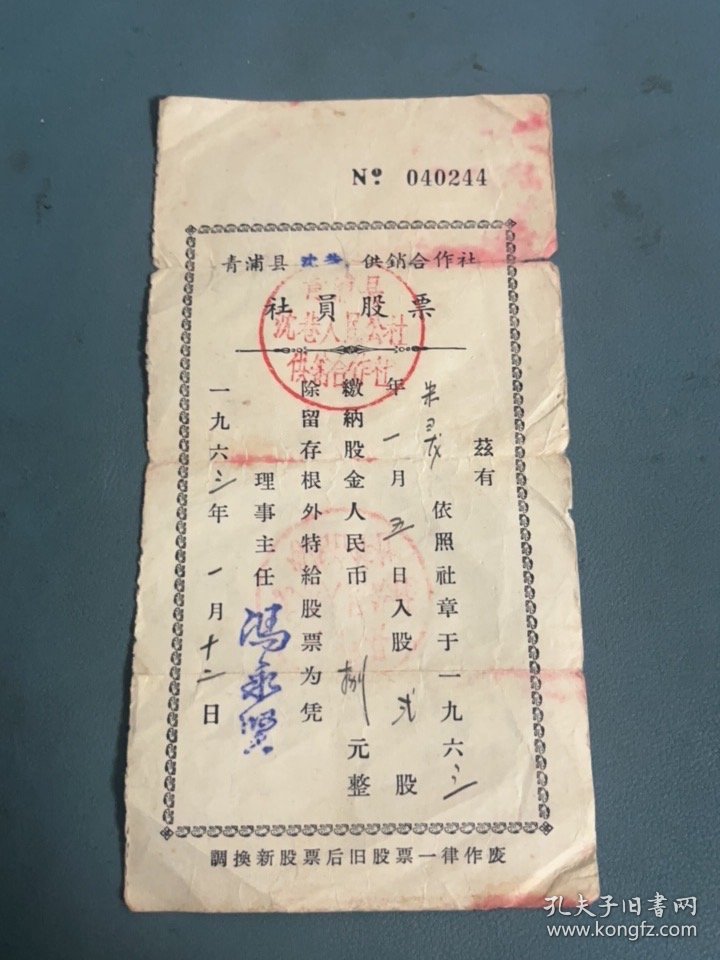 No 040244
青浦县 沈巷 供銷合作社
社員股票
青浦县
沈巷人民公社
供销合作社
兹有
朱 龙 依照社章于一九六三
年一月五日入股弍股
繳納股金人民币 捌元整
除留存根外特給股票为凭
理事主任 馮永贤
一九六三年一月十二日
調換新股票后旧股票一律作废
孔夫子旧书网
www.kongfz.com